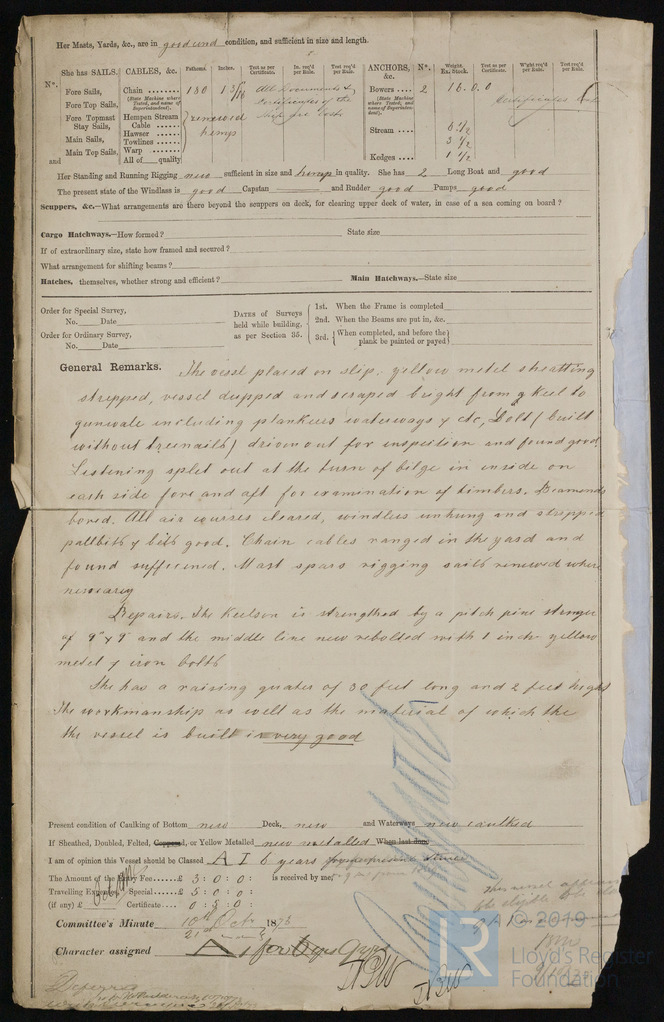 Her Masts, Yards, &c., are in good and condition, and sufficient in size and length.
She has SAILS. CABLES, &c. Fathoms. Inches. Test as per Certificate. In. req'd per Rule. Test req'd per Rule. ANCHORS, &c. Nos. Weight. Ex. Stock. Test as per Certificate. W'ght req'd per Rule. Test req'd per Rule.
Nos.
Fore Sails, Chain ........ 180 1 3/16 All Documents & Bowers .... 2 16.0.0
(State Machine where Tested, and name of Superintendent). Certificates of the (State Machine where Tested, and name of Superintendent). Certificates
Fore Top Sails, Ship are lost
Fore Topmast Stay Sails, Hempen Stream Cable ...... renewed
Hawser ...... hemp Stream .... 6 1/2
Main Sails, Towlines .... 3 1/2
Main Top Sails, Warp ...... Kedges .... 1 1/2
and All of quality
Her Standing and Running Rigging new sufficient in size and hemp in quality. She has 2 Long Boat and good
The present state of the Windlass is good Capstan and Rudder good Pumps good
Scuppers, &c.—What arrangements are there beyond the scuppers on deck, for clearing upper deck of water, in case of a sea coming on board?
Cargo Hatchways.—How formed? State size
If of extraordinary size, state how framed and secured?
What arrangement for shifting beams?
Hatches, themselves, whether strong and efficient? Main Hatchways.—State size
Order for Special Survey,
No. Date
Order for Ordinary Survey,
No. Date
DATES of Surveys held while building, as per Section 35.
1st. When the Frame is completed
2nd. When the Beams are put in, &c.
3rd. When completed, and before the plank be painted or payed
General Remarks. The vessel placed on slip. yellow metal sheatting
stripped, vessel dupped and scraped bright from keel to
gunwale including plankeers waterways & etc, Bolt (built
without treenails) driven out for inspection and found good
Listening split out at the turn of bilge in inside on
each side fore and aft for examination of timbers. Beamends
bored. All air courses cleared, windless unhung and stripped
pallbits & bits good. Chain cables ranged in the yard and
found sufficened. Mast spars rigging sails renewed where
nessarey
Repairs. The Keelson is strengthed by a pitch pine stringer
of 9" x 9" and the middle line new rebolted with 1 inch yellow
metal & iron bolts
She has a raising quater of 30 feet long and 2 feet hight
The workmanship as well as the material of which the
the vessel is built is very good
Present condition of Caulking of Bottom new Deck, new and Waterways new caulked
If Sheathed, Doubled, Felted, Coppered, or Yellow Metalled new metalled When last done
I am of opinion this Vessel should be Classed A I 6 years
The Amount of the Entry Fee .... £ 3 : 0 : 0 : is received by me,
Travelling Expenses Special .... £ 5 : 0 : 0 :
(if any) £ Certificate .... 0 : 5 : 0
Committee's Minute 10th Octr 1873
21st
Character assigned A 1 for 6 yrs
IBW
IBW
Deferred
© 2019
LR
Lloyd's Register
Foundation